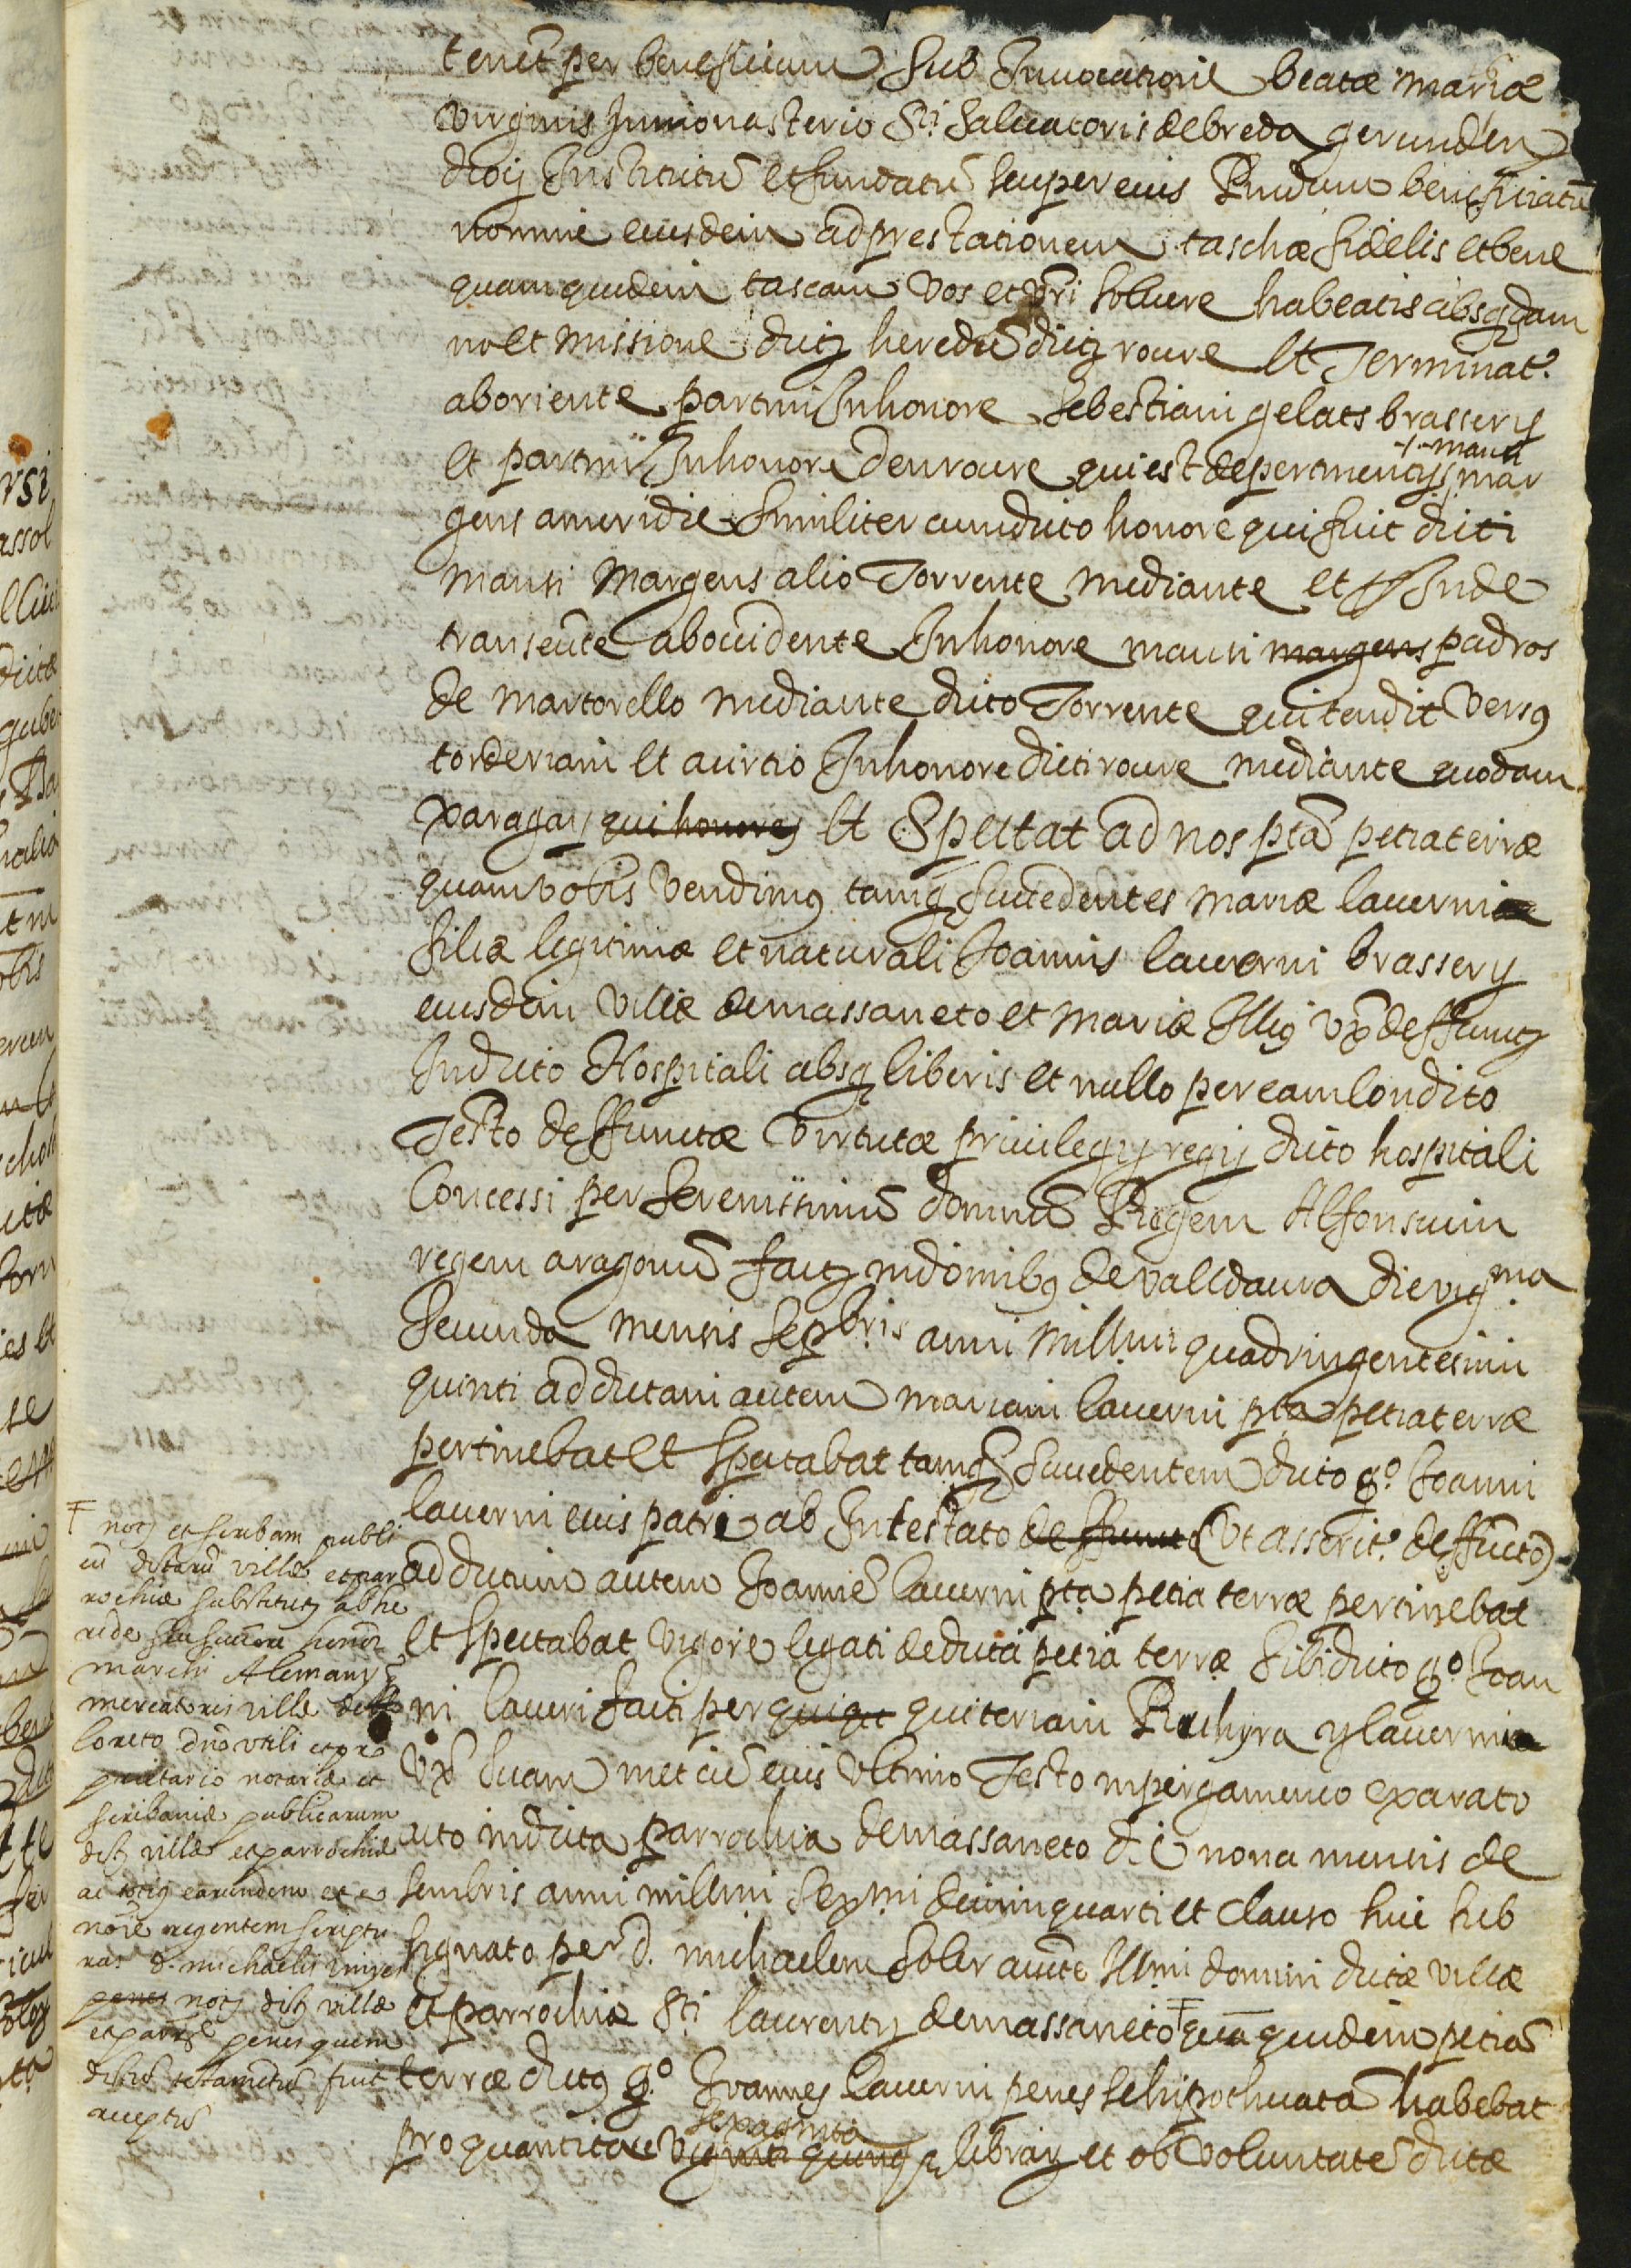 tenet per beneficium sub Invocatione beatæ mariæ
virginis In monasterio Sti. Saluatoris de breda gerunden
diocij Institutũ et fundatũ seu per eius Prudum beneficiatũ
nomine eiusdem ad prestationem taschæ fidelis et bene
quam quidem tascam vos et vri soluere habeatis absq dam
no et missione dictj heredũ dictj roure Et Terminatr.
ab oriente partim In honore sebestiani gelats brasserij
et partim In honore den roure qui est de pertinencijs mar
mansi
gens a meridie similiter cum dicto honore qui fuit dicti
mansi Margens alio Torrente mediante et Inde
transeũte ab occidente In honore mansi margens padros
de martorello mediante dicto Torrente qui tendit versus
torderiam et a circio In honore dicti roure mediante quodam
xaragay qui honores Et Spectat ad nos pta petia terræ
quam vobis vendimus tamq succedentes mariæ lauerni
filiæ legitimæ et naturali Joannis lauerni brasserij
eiusdem villæ de massaneto et mariæ Illius vx deffunctj
In dicto Hospitali absq liberis et nullo per eam condito
Testo deffunctæ virtutæ priuilegij regij dicto hospitali
Concessi per serenissimũ dominũ Regem Alfonsum
regem aragonũ factj in domibus de valldaura die vigma
secunda mensis sepbris anni Millmi quadringentesimi
quinti ad dictam autem mariam lauerni pta petia terræ
pertinebat et spectabat tamq succedentem dicto qo. Joanni
lauerni eius patri ab Intestato deffuncto (vt asseritr. deffũcto)
ad dictum autem Joannẽ lauerni pta petia terræ pertinebat
et spectabat vigore legati de dicta petia terræ sibi dicto qo. Joan
ni lauerni facti per quiqu quiteriam Richyra y lauerni
vx suam met cũ eius vltimo Testo in pergameneo exarato
acto in dicta parrochia de massaneto die nona mensis de
sembris anni millmi sexmi decim quarti et clauso hic sub
signato per d. michaelem Soler aucte Illmi domini dictæ villæ
et parrochiæ Sti laurentij de massaneto quã quidem petiã
terræ dictus qo. Joannes lauerni penes se hipothecatã habebat
sexaginta
pro quantitate viginti quinq librarj et ob voluntatẽ dictæ
notj et scribam publi
cũ dictarũ villæ et par
rochiæ substitutj ab he
rede seu
marchi Alemany
mercatoris villæ de
loreto dno vtili et pro
prietario notariæ et
scribaniæ publicarum
dictj villæ et parrochiæ
ac totius earundem et eo
noie regentem scriptu
ras d. michaelis
penes notj dictj villæ
et parre penes quem
dictũ testamentũ fuit
aceptũ